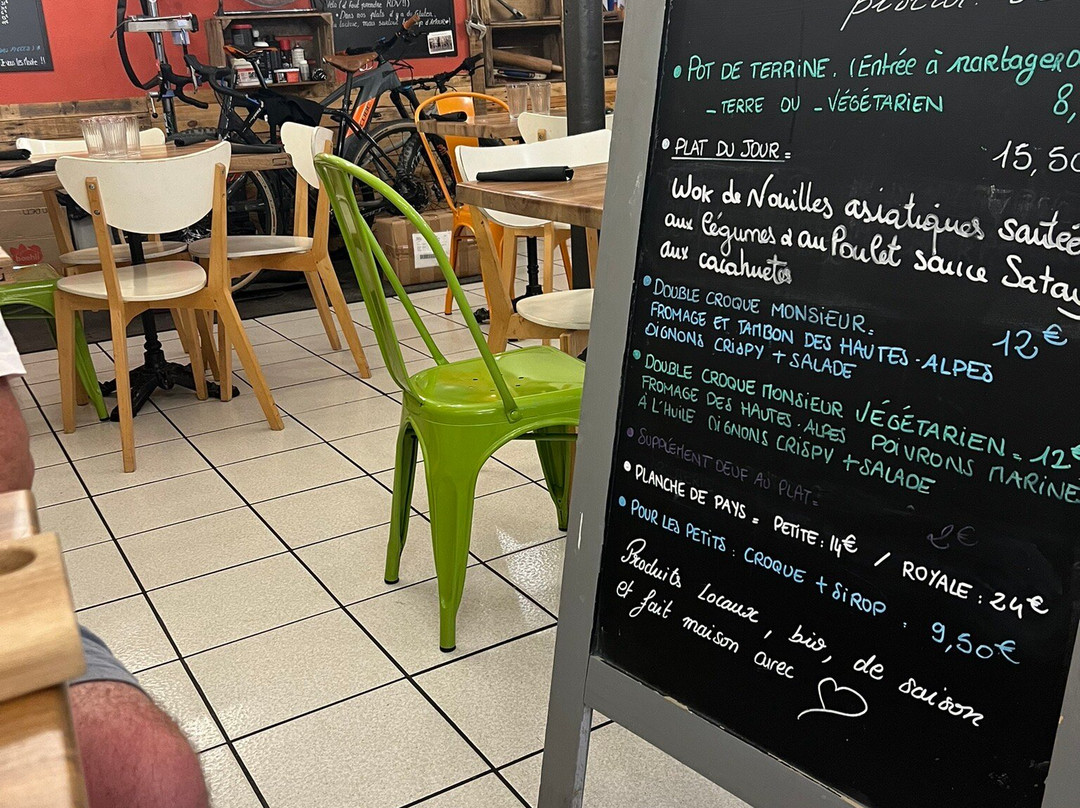 POT DE TERRINE. (Entrée à partager)
- TERRE OU - VÉGÉTARIEN 8,
PLAT DU JOUR = 15,50
Wok de Nouilles asiatiques sautée
aux légumes & au Poulet sauce Satay
aux cacahuets
DOUBLE CROQUE MONSIEUR =
FROMAGE ET JAMBON DES HAUTES-ALPES 12€
OIGNONS CRISPY + SALADE
DOUBLE CROQUE MONSIEUR VÉGÉTARIEN = 12€
FROMAGE DES HAUTES-ALPES POIVRONS MARINÉ
À L'HUILE OIGNONS CRISPY + SALADE
SUPPLÉMENT OEUF AU PLAT = 2€
PLANCHE DE PAYS = PETITE : 14€ / ROYALE : 24€
POUR LES PETITS : CROQUE + SIROP : 9,50€
Produits Locaux, bio, de saison
et fait maison avec